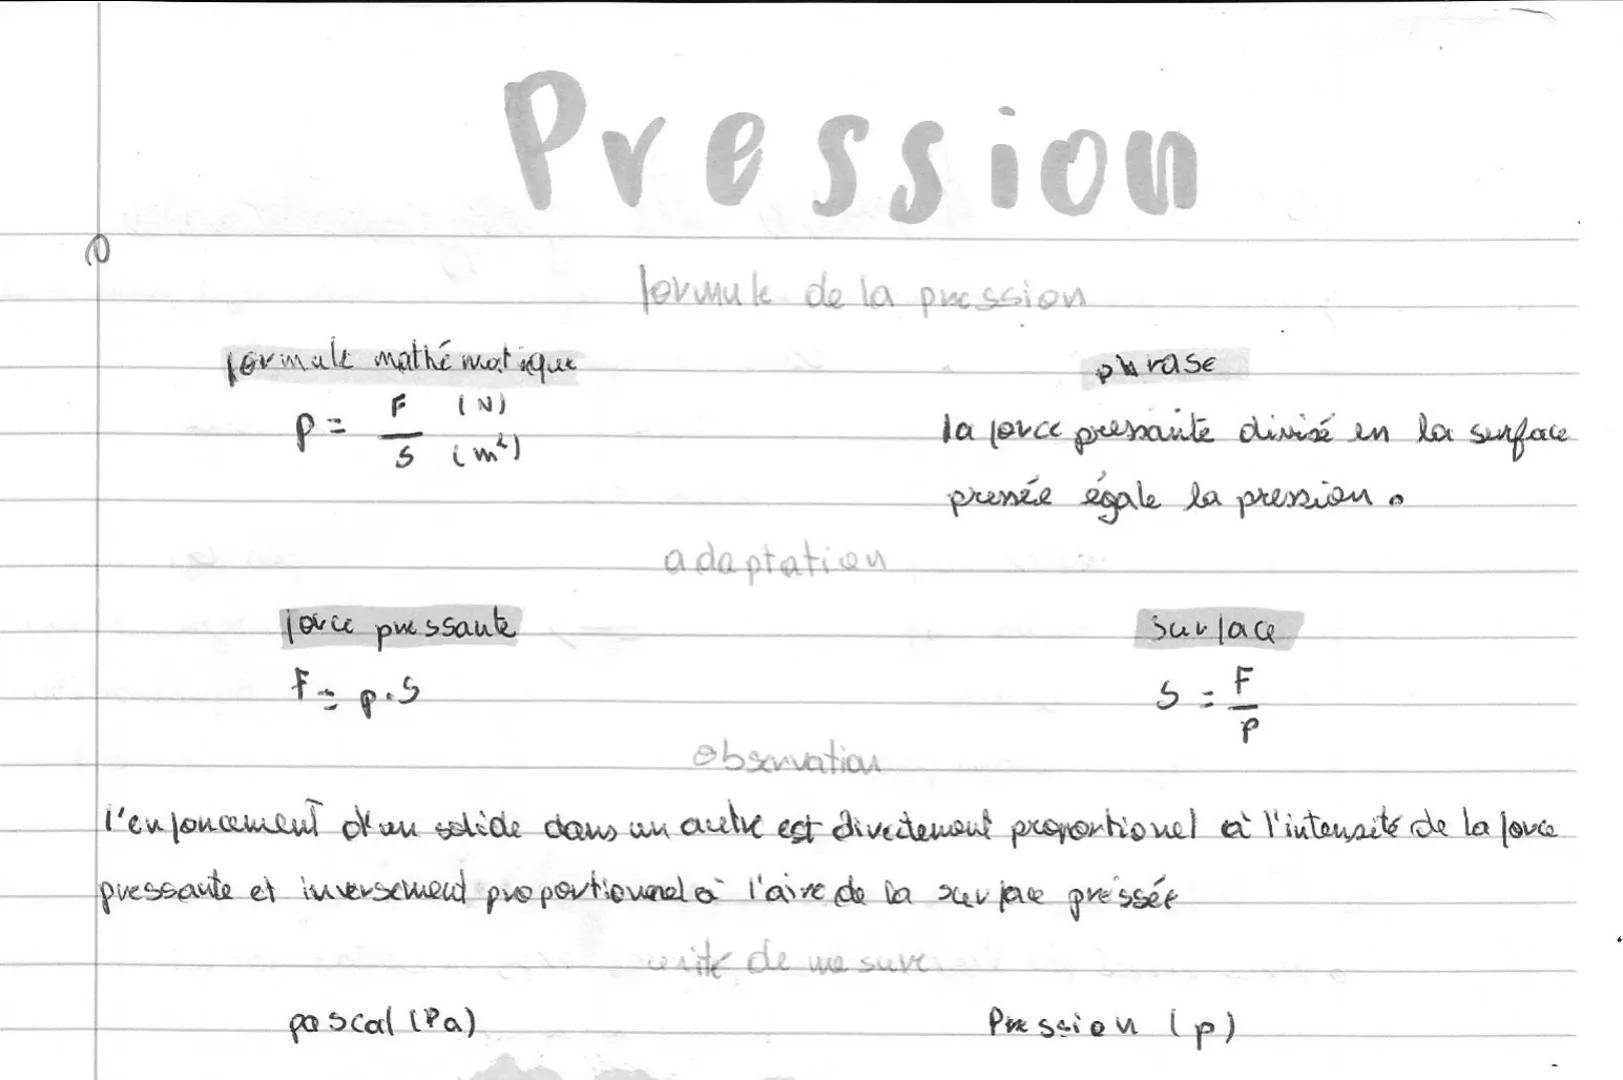 Pression
formule de la pression
formule mathématique
phrase
p = F (N)
S (m²)
la force pressante divisé en la surface
pressée égale la pression.
adaptation
force pressante
surface
F = p.S
S = F
p
observation
l'enfoncement d'un solide dans un autre est directement proportionel à l'intensité de la force
pressante et inversement proportionnel à l'aire de la surface pressée
unité de mesure
pascal (Pa)
Pression (p)